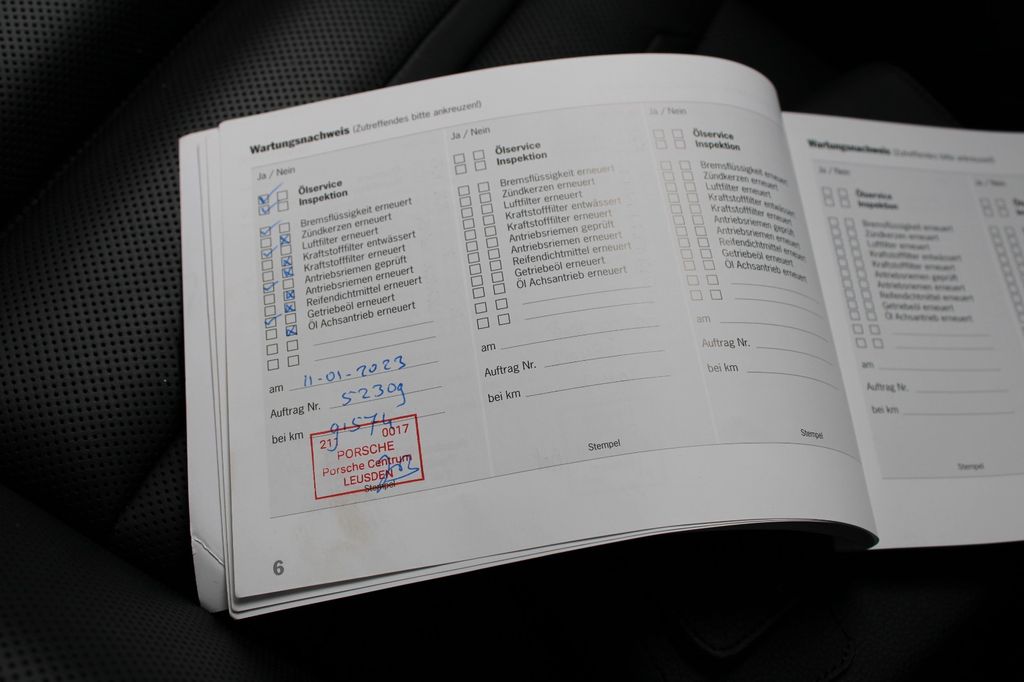 Wartungsnachweis (Zutreffendes bitte ankreuzen!)
Ja / Nein
Ölservice
Inspektion
Bremsflüssigkeit erneuert
Zündkerzen erneuert
Luftfilter erneuert
Kraftstofffilter entwässert
Kraftstofffilter erneuert
Antriebsriemen geprüft
Antriebsriemen erneuert
Reifendichtmittel erneuert
Getriebeöl erneuert
Öl Achsantrieb erneuert
am 11-01-2023
Auftrag Nr. 52309
bei km 91574
217 0017
PORSCHE
Porsche Centrum
LEUSDEN
Stempel
6
Ja / Nein
Ölservice
Inspektion
Bremsflüssigkeit erneuert
Zündkerzen erneuert
Luftfilter erneuert
Kraftstofffilter entwässert
Kraftstofffilter erneuert
Antriebsriemen geprüft
Antriebsriemen erneuert
Reifendichtmittel erneuert
Getriebeöl erneuert
Öl Achsantrieb erneuert
am
Auftrag Nr.
bei km
Stempel
Ja / Nein
Ölservice
Inspektion
Bremsflüssigkeit erneuert
Zündkerzen erneuert
Luftfilter erneuert
Kraftstofffilter entwässert
Kraftstofffilter erneuert
Antriebsriemen geprüft
Antriebsriemen erneuert
Reifendichtmittel erneuert
Getriebeöl erneuert
Öl Achsantrieb erneuert
am
Auftrag Nr.
bei km
Stempel
Wartungsnachweis (Zutreffendes bitte ankreuzen!)
Ja / Nein
Ölservice
Inspektion
Bremsflüssigkeit erneuert
Zündkerzen erneuert
Luftfilter erneuert
Kraftstofffilter entwässert
Kraftstofffilter erneuert
Antriebsriemen geprüft
Antriebsriemen erneuert
Reifendichtmittel erneuert
Getriebeöl erneuert
Öl Achsantrieb erneuert
am
Auftrag Nr.
bei km
Stempel
Ja / Nein